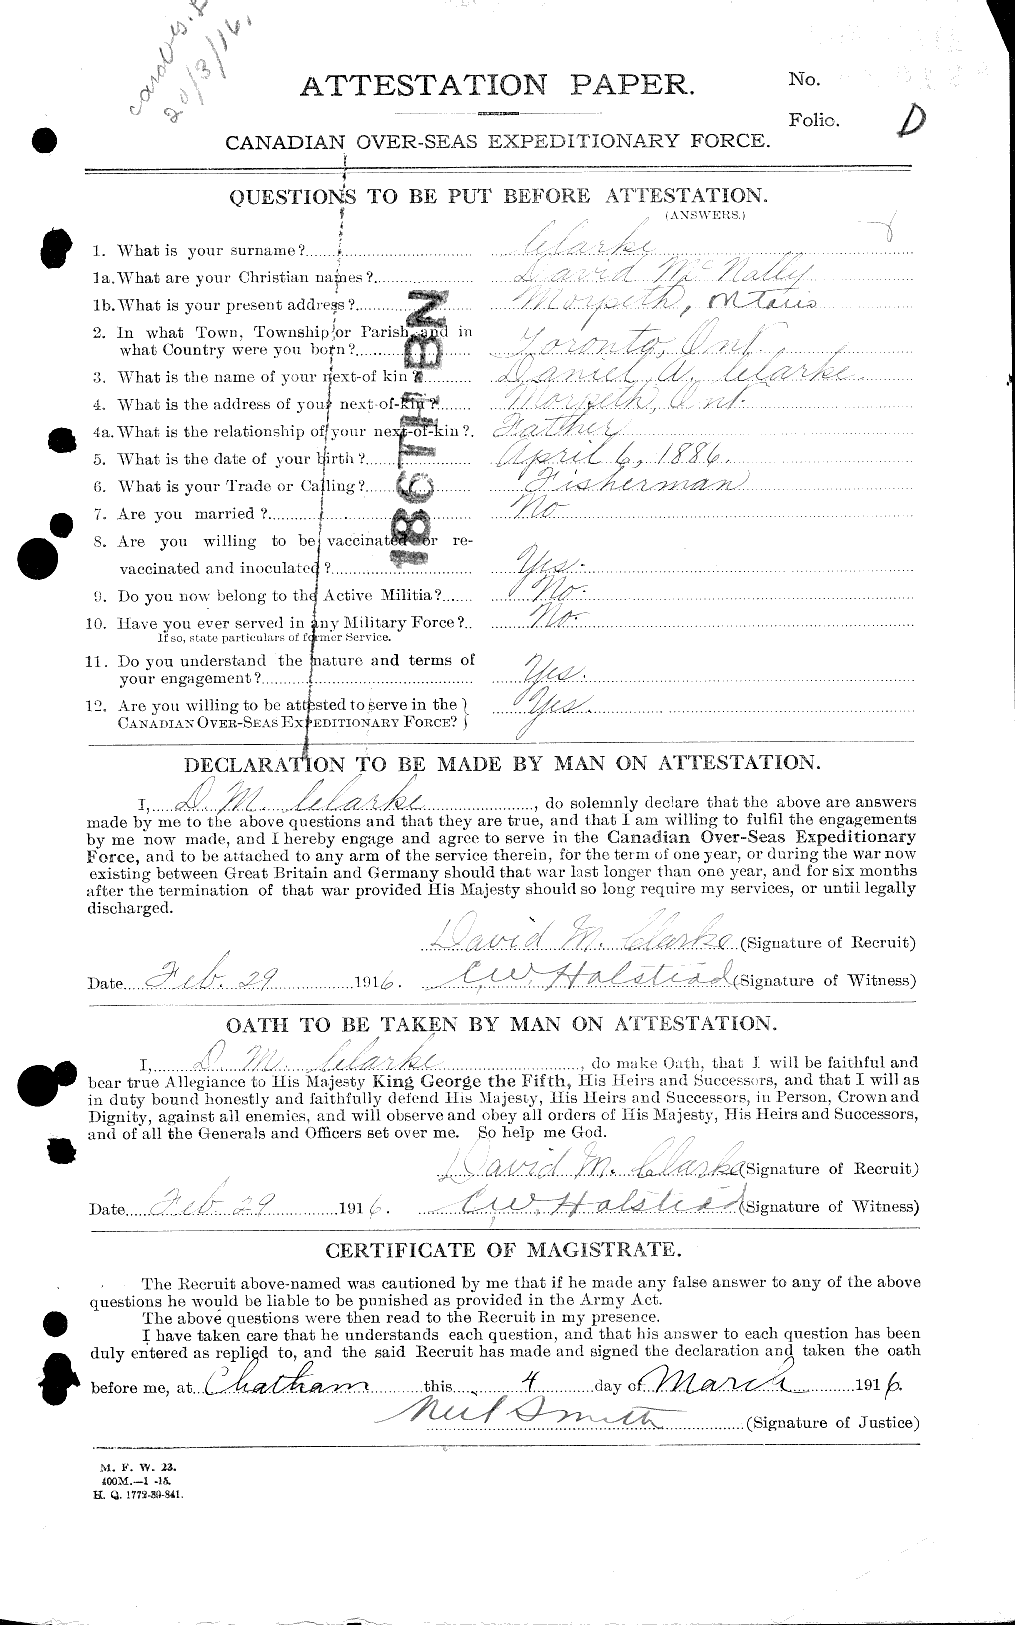 20/3/16.
ATTESTATION PAPER.
No.
Folio.
D
CANADIAN OVER-SEAS EXPEDITIONARY FORCE.
QUESTIONS TO BE PUT BEFORE ATTESTATION.
(ANSWERS.)
1. What is your surname? Clarke
1a. What are your Christian names? David McNally
1b. What is your present address? Morpeth, Ontario
2. In what Town, Township or Parish, and in
what Country were you born? Toronto, Ont.
3. What is the name of your next-of kin? Daniel A. Clarke
4. What is the address of your next-of-kin? Morpeth, Ont.
4a. What is the relationship of your next-of-kin? Father
5. What is the date of your birth? April 6, 1886.
6. What is your Trade or Calling? Fisherman
7. Are you married? No
8. Are you willing to be vaccinated or re-
vaccinated and inoculated? Yes.
9. Do you now belong to the Active Militia? No.
10. Have you ever served in any Military Force? No.
If so, state particulars of former Service.
11. Do you understand the nature and terms of
your engagement? Yes.
12. Are you willing to be attested to serve in the
CANADIAN OVER-SEAS EXPEDITIONARY FORCE? Yes.
186TH BN
DECLARATION TO BE MADE BY MAN ON ATTESTATION.
I, D. M. Clarke, do solemnly declare that the above are answers
made by me to the above questions and that they are true, and that I am willing to fulfil the engagements
by me now made, and I hereby engage and agree to serve in the Canadian Over-Seas Expeditionary
Force, and to be attached to any arm of the service therein, for the term of one year, or during the war now
existing between Great Britain and Germany should that war last longer than one year, and for six months
after the termination of that war provided His Majesty should so long require my services, or until legally
discharged.
David M. Clarke (Signature of Recruit)
Date Feb. 29 1916. C.W. Halstead (Signature of Witness)
OATH TO BE TAKEN BY MAN ON ATTESTATION.
I, D. M. Clarke, do make Oath, that I will be faithful and
bear true Allegiance to His Majesty King George the Fifth, His Heirs and Successors, and that I will as
in duty bound honestly and faithfully defend His Majesty, His Heirs and Successors, in Person, Crown and
Dignity, against all enemies, and will observe and obey all orders of His Majesty, His Heirs and Successors,
and of all the Generals and Officers set over me. So help me God.
David M. Clarke (Signature of Recruit)
Date Feb 29 1916. C.W. Halstead (Signature of Witness)
CERTIFICATE OF MAGISTRATE.
The Recruit above-named was cautioned by me that if he made any false answer to any of the above
questions he would be liable to be punished as provided in the Army Act.
The above questions were then read to the Recruit in my presence.
I have taken care that he understands each question, and that his answer to each question has been
duly entered as replied to, and the said Recruit has made and signed the declaration and taken the oath
before me, at Chatham this 4 day of March 1916.
Neil Smith (Signature of Justice)
M. F. W. 23.
400M.—1-15.
H. Q. 1772-39-841.